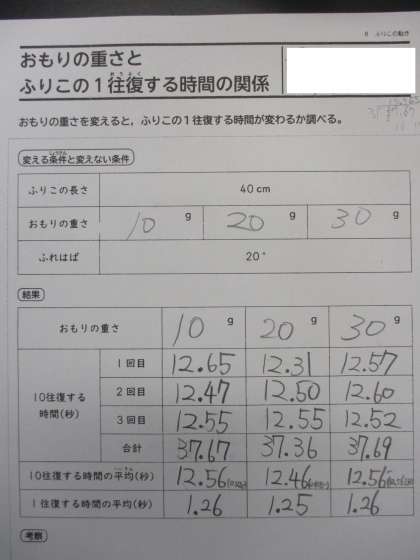 8 ふりこの動き
おもりの重さと
ふりこの1往復する時間の関係
おもりの重さを変えると，ふりこの1往復する時間が変わるか調べる。
変える条件と変えない条件
ふりこの長さ 40 cm
おもりの重さ 10 g 20 g 30 g
ふれはば 20°
結果
おもりの重さ 10 g 20 g 30 g
10往復する時間(秒)
1回目 12.65 12.31 12.57
2回目 12.47 12.50 12.60
3回目 12.55 12.55 12.52
合計 37.67 37.36 37.69
10往復する時間の平均(秒) 12.56 12.46 12.56
1往復する時間の平均(秒) 1.26 1.25 1.26
考察